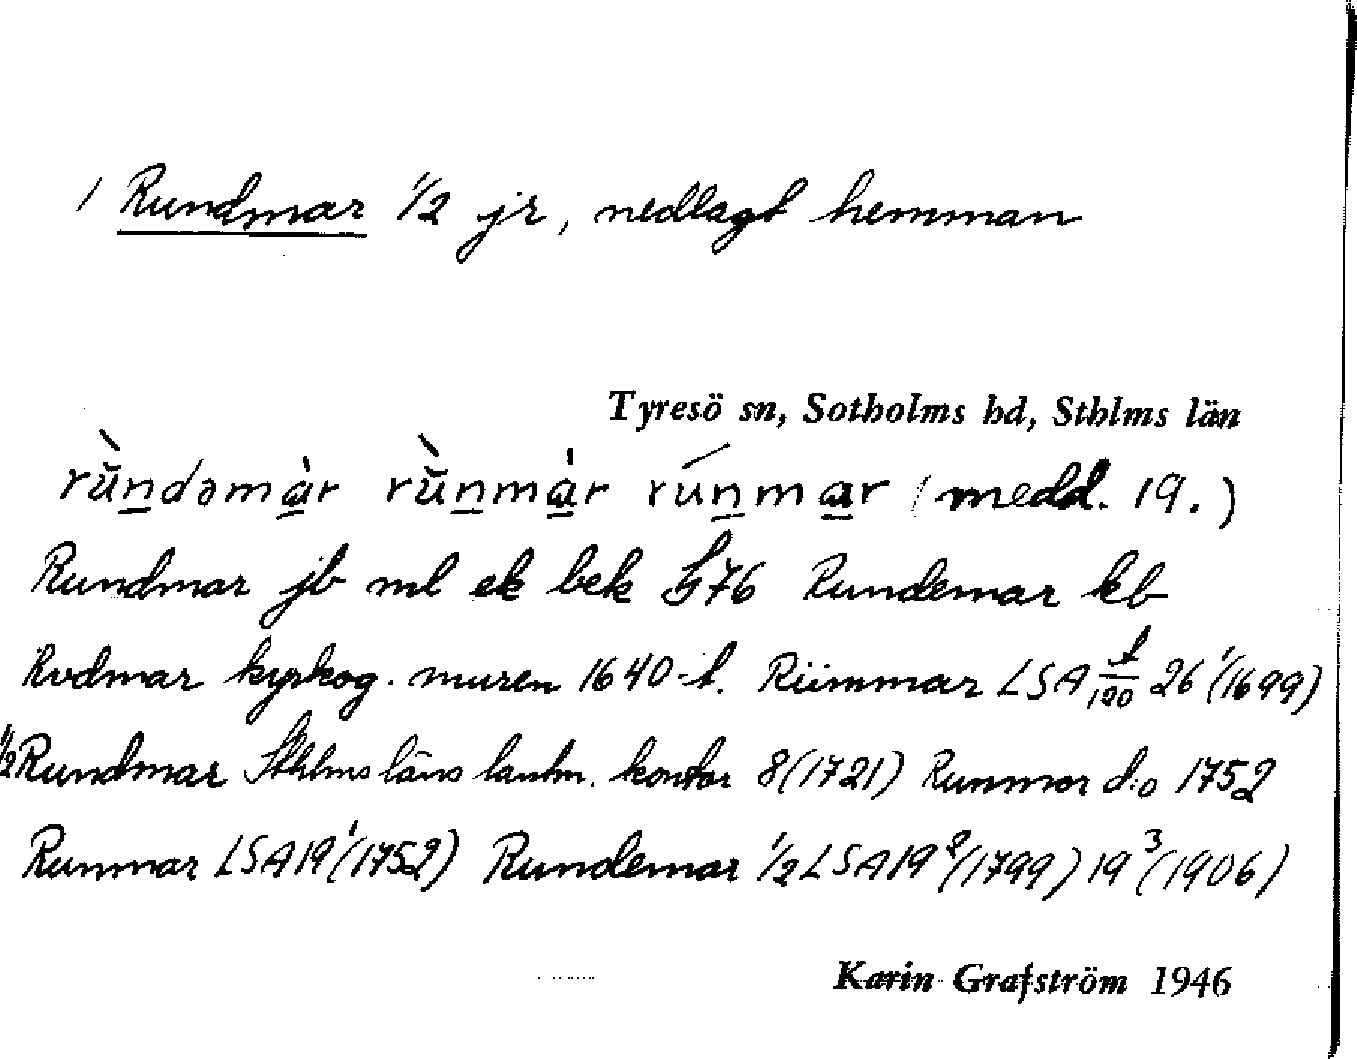 / Rundmar 1/2 jr, nedlagt hemman
Tyresö sn, Sotholms hd, Sthlms län
rŭ̀n̲dəmà̲r rŭ̀n̲mà̲r rún̲ma̲r (medd. 19.)
Rundmar jb ml ek bek 76 Rundemar kb
Rvdmar kyrkog. muren 1640-t. Riimmar LSA 1/120 26¹(1699)
1/2 Rundmar Sthlms läns lantm. kontor 8(1721) Runmor d:o 1752
Runmar LSA 19¹(1752) Rundemar 1/2 LSA 19²(1799) 19³(1906)
Karin Grafström 1946